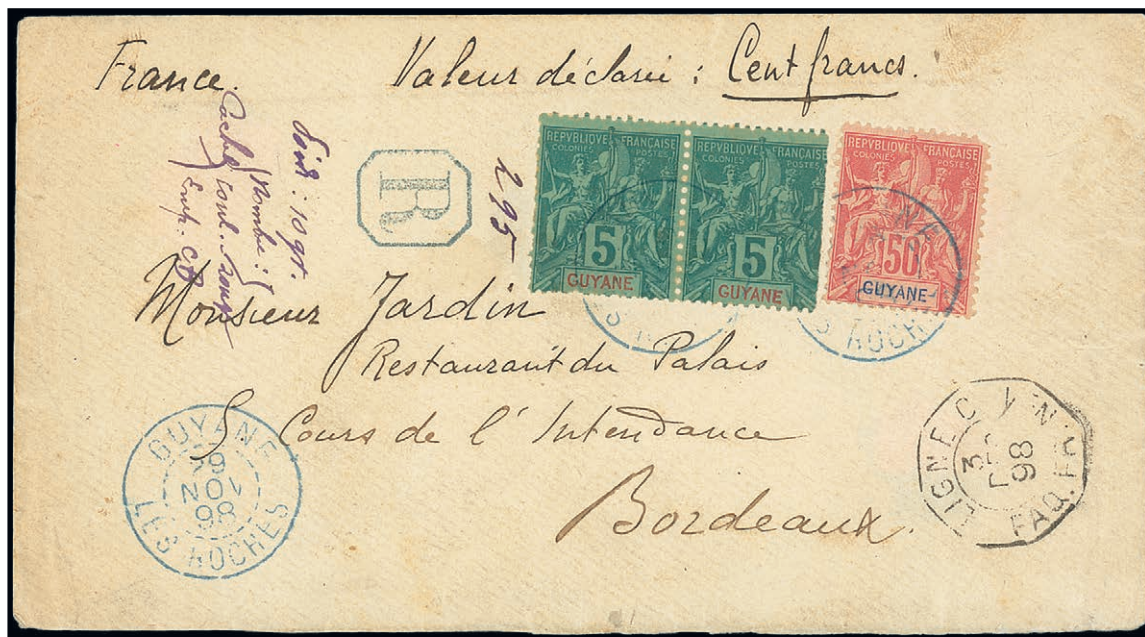 France. Valeur déclarée : Cent francs.
Poids : 10 gr.
Cachet
R
295
REPVBLIQUE FRANÇAISE
COLONIES POSTES
5
GUYANE
REPVBLIQUE FRANÇAISE
COLONIES POSTES
5
GUYANE
REPVBLIQUE FRANÇAISE
COLONIES POSTES
50
GUYANE
Monsieur Jardin
Restaurant du Palais
5 Cours de l'Intendance
Bordeaux.
GUYANE
29
NOV
98
LES ROCHES
LIGNE C
3
DEC
98
PAQ. FR